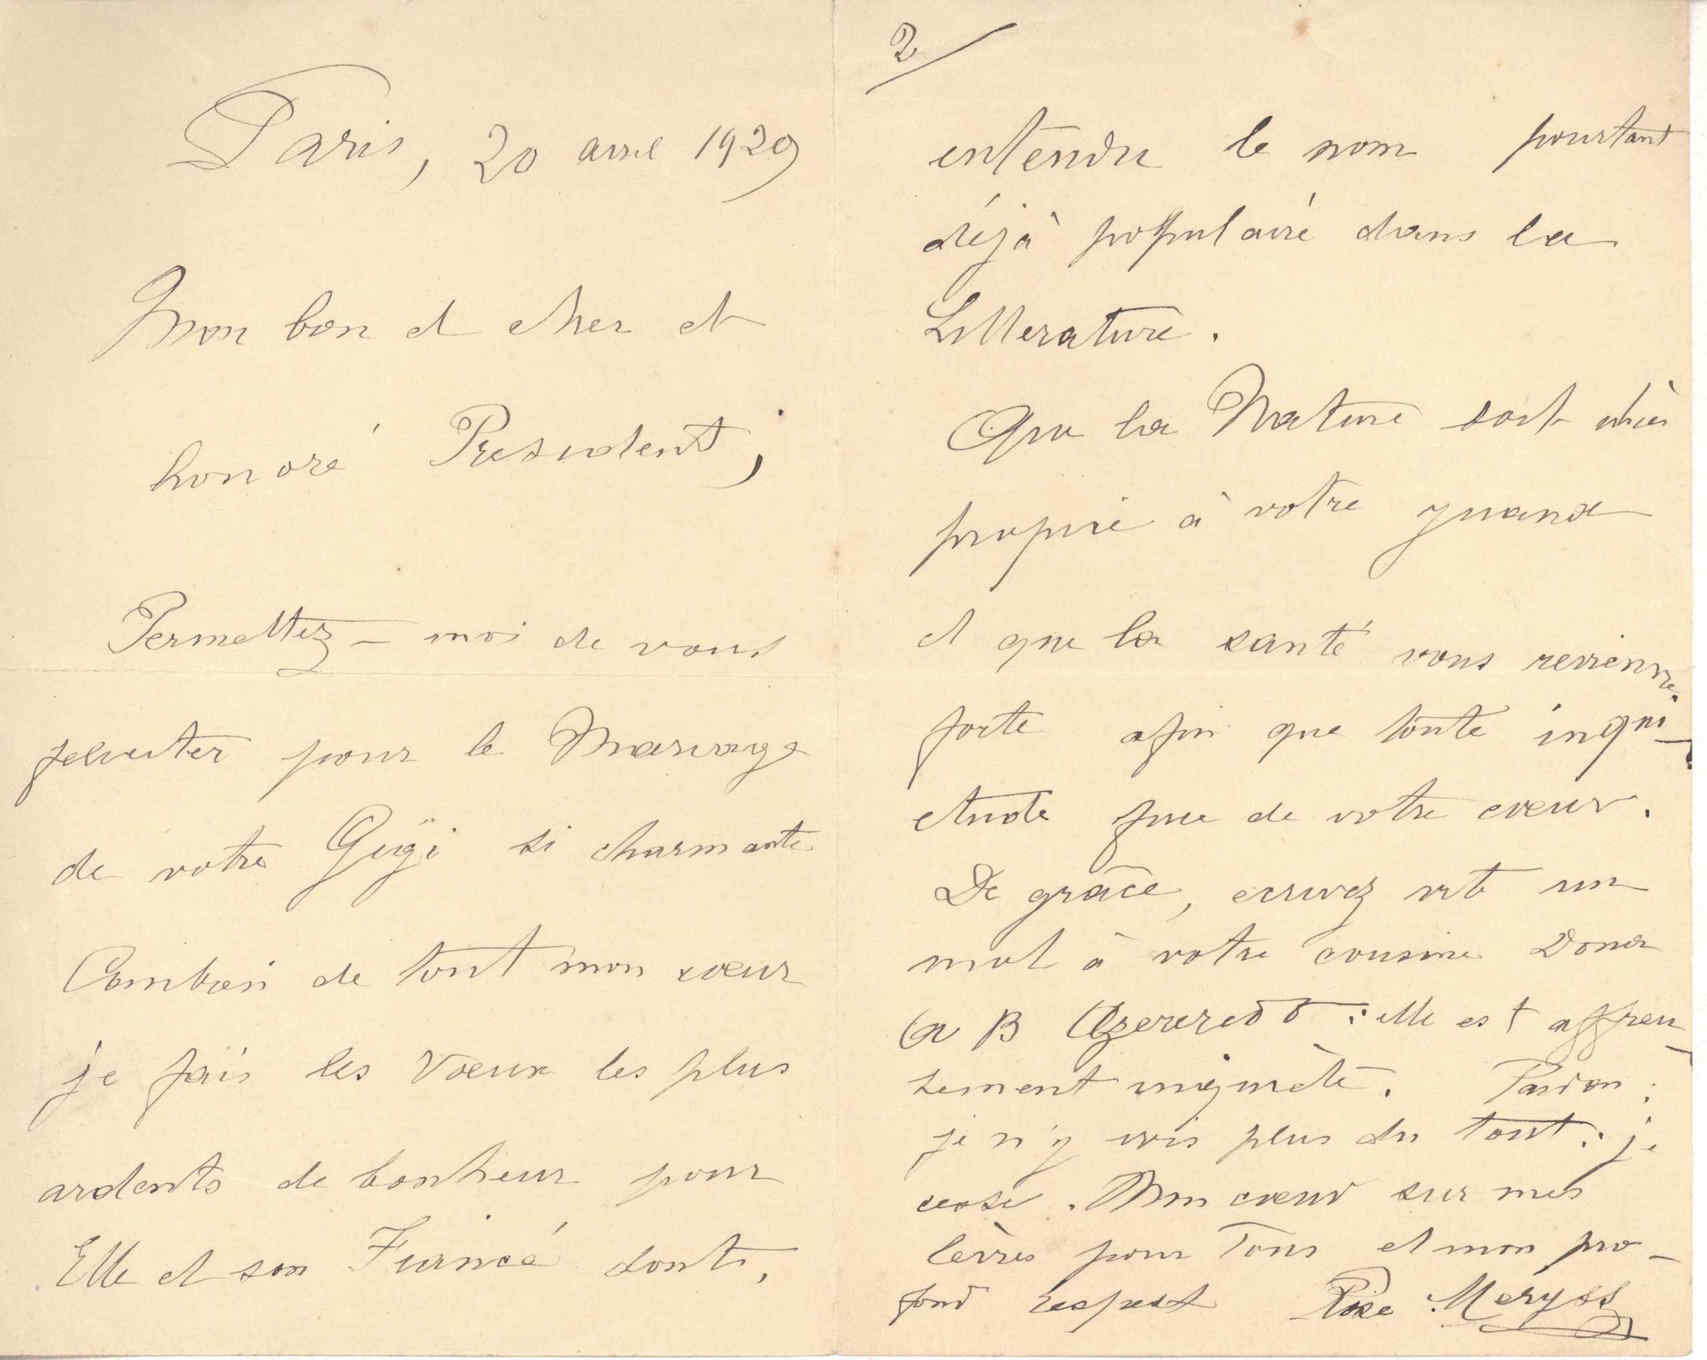 Paris, 20 avril 1929
Mon bon et cher et
honoré Président,
Permettez-moi de vous
feliciter pour le Mariage
de votre Gigi si charmante
Combien de tout mon cœur
je fais les vœux les plus
ardents de bonheur pour
Elle et son Fiancé dont
2/
entendu le nom pourtant
déjà populaire dans la
Litterature.
Que la Nature soit
propice à votre
et que la santé vous revienne
forte afin que toute inqui-
etude fuie de votre cœur.
De grâce, ecrivez vite un
mot à votre cousine Dona
B Azeredo : elle est affreu-
sement inquiète. Pardon :
je n'y vois plus du tout : je
cesse. Mon cœur sur mes
lèvres pour Tous et mon pro-
fond respect Rose Meryss